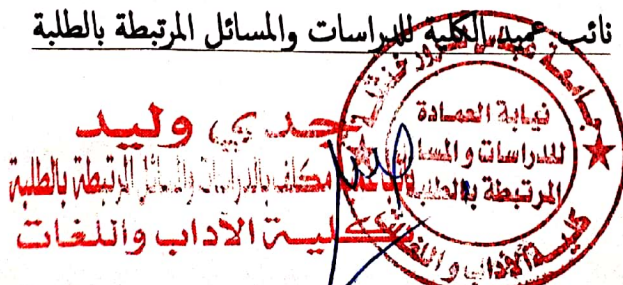 نائب عميد الكلية للدراسات والمسائل المرتبطة بالطلبة
جدي وليد
مكلف بالدراسات والمسائل المرتبطة بالطلبة
كلية الآداب واللغات
نيابة العمادة
للدراسات و المسا
المرتبطة بالطلبة
جامعة عباس لغرور خنشلة
كلية الآداب و اللغات